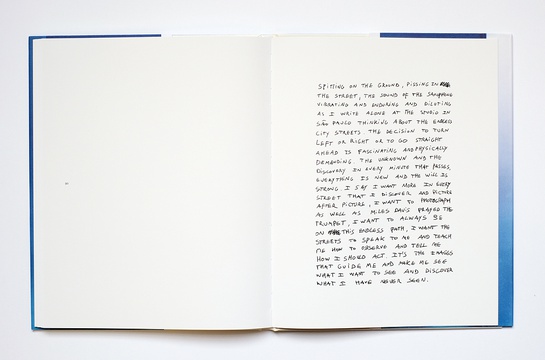 SPITTING ON THE GROUND, PISSING IN
THE STREET, THE SOUND OF THE SAXOPHONE
VIBRATING AND ENDURING AND DILUTING
AS I WRITE ALONE AT THE STUDIO IN
SÃO PAULO THINKING ABOUT THE ENDLESS
CITY STREETS. THE DECISION TO TURN
LEFT OR RIGHT OR TO GO STRAIGHT
AHEAD IS FASCINATING AND PHYSICALLY
DEMANDING. THE UNKNOWN AND THE
DISCOVERY IN EVERY MINUTE THAT PASSES,
EVERYTHING IS NEW AND THE WILL IS
STRONG. I SAY I WANT MORE IN EVERY
STREET THAT I DISCOVER AND PICTURE
AFTER PICTURE, I WANT TO PHOTOGRAPH
AS WELL AS MILES DAVIS PLAYED THE
TRUMPET, I WANT TO ALWAYS BE
ON THIS ENDLESS PATH, I WANT THE
STREETS TO SPEAK TO ME AND TEACH
ME HOW TO OBSERVE AND TELL ME
HOW I SHOULD ACT. IT'S THE IMAGES
THAT GUIDE ME AND MAKE ME SEE
WHAT I WANT TO SEE AND DISCOVER
WHAT I HAVE NEVER SEEN.